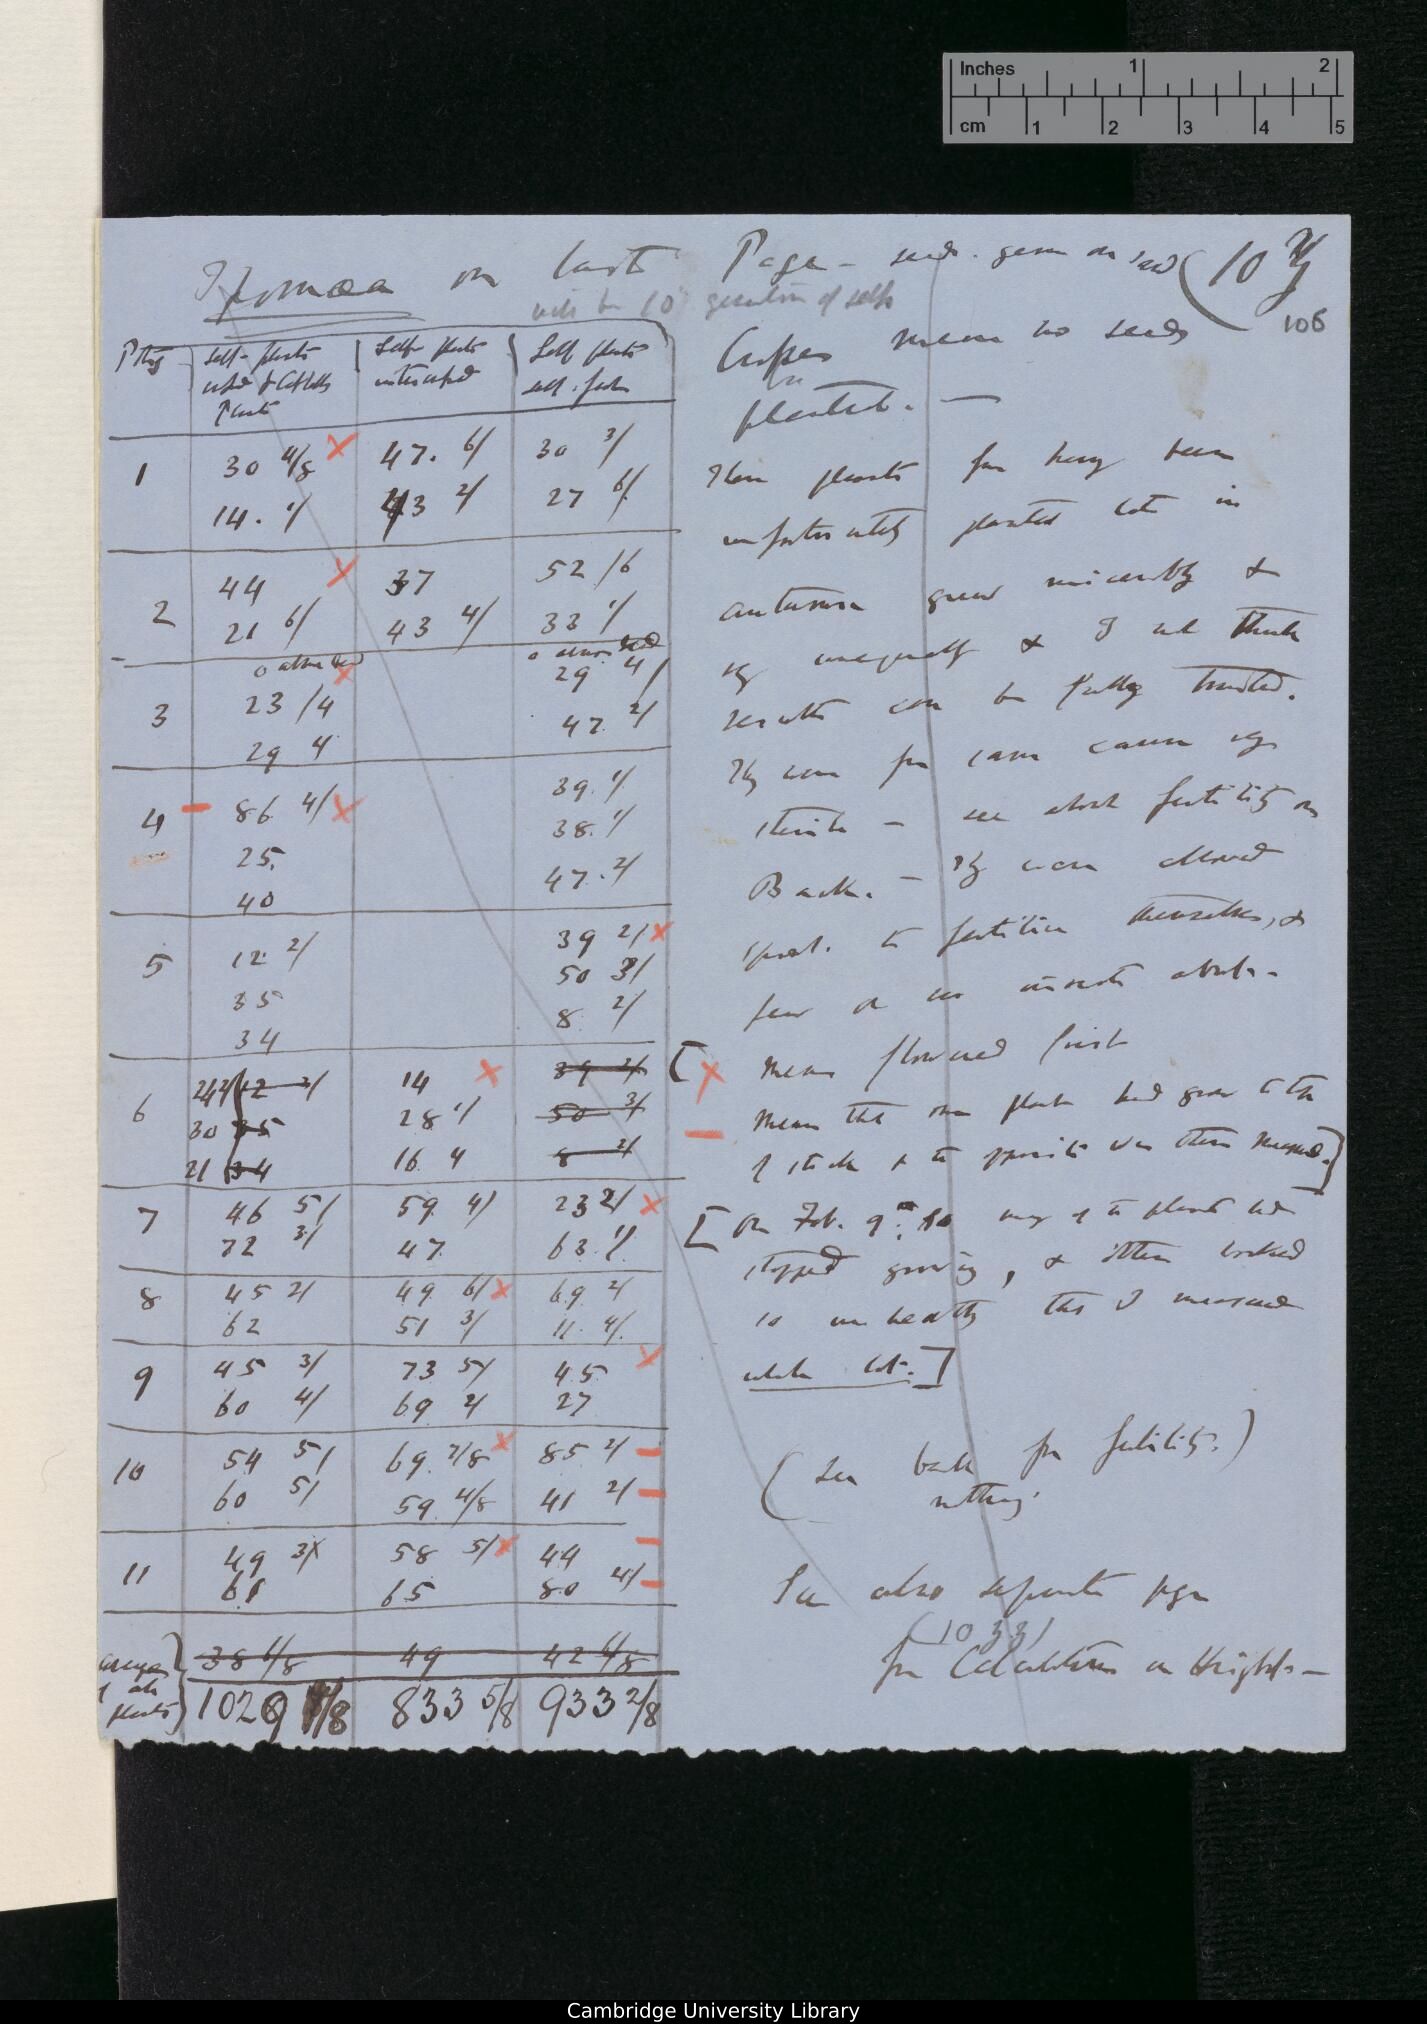 Inches 1 2
cm 1 2 3 4 5
Ipomœa on last Page — seeds germ on sand (10
will be 10 generation of selfs
106
Pttg
Self-plants
Plants
Self plants
intercrossed
Self plants
self. fert
mean no seeds
planted. —
1
30 4/8 x 47. 6/ 30 3/
14. 1/ 43 2/ 27 6/
These plants from having been
unfortunately planted late in
2
44 x 37 52 /6
21 6/ 43 4/ 33 1/
autumn grew miserably &
vy unequally & I do not think
3
x 29 4/
23 /4 47. 2/
29 4
results can be fully trusted.
They were from same cause vy
4
— 86 4/ x 39. 1/
25. 38. 1/
40 47. 2/
sterile — see about fertility on
Back. — They were allowed
5
12. 2/ 39 2/ x
35 50 3/
34 8. 2/
spont. to fertilise themselves, &
few or no insects about.
6
12 2/ 14 x 39 2/
30 35 28 1/ 50 3/
21 34 16 4 8 2/
[ x means flowered first
— means that one plant had grown to top
of stick & the opposite was then measured.]
7
46 5/ 59. 4/ 23 2/ x
72 3/ 47. 63. 1/
[On Feb. 9th. so many of the plants had
stopped growing, & others looked
8
45 2/ 49 6/ x 69 2/
62 51 3/ 11. 4/
so unhealthy that I measured
whole lot.]
9
45 3/ 73 5/ 45 x
60 4/ 69 2/ 27
10
54 5/ 69. 2/8 x 85 2/ —
60 5/ 59. 4/8 41 2/ —
(See back for fertility.)
nothing.
11
49 3/ 58 5/ x 44 —
61 65 80 4/ —
See also separate page
(10 33)
for Calculations on Heights —
averages
of all
plants
38 6/8 49 42 6/8
102 /8 833 5/8 933 2/8
Cambridge University Library